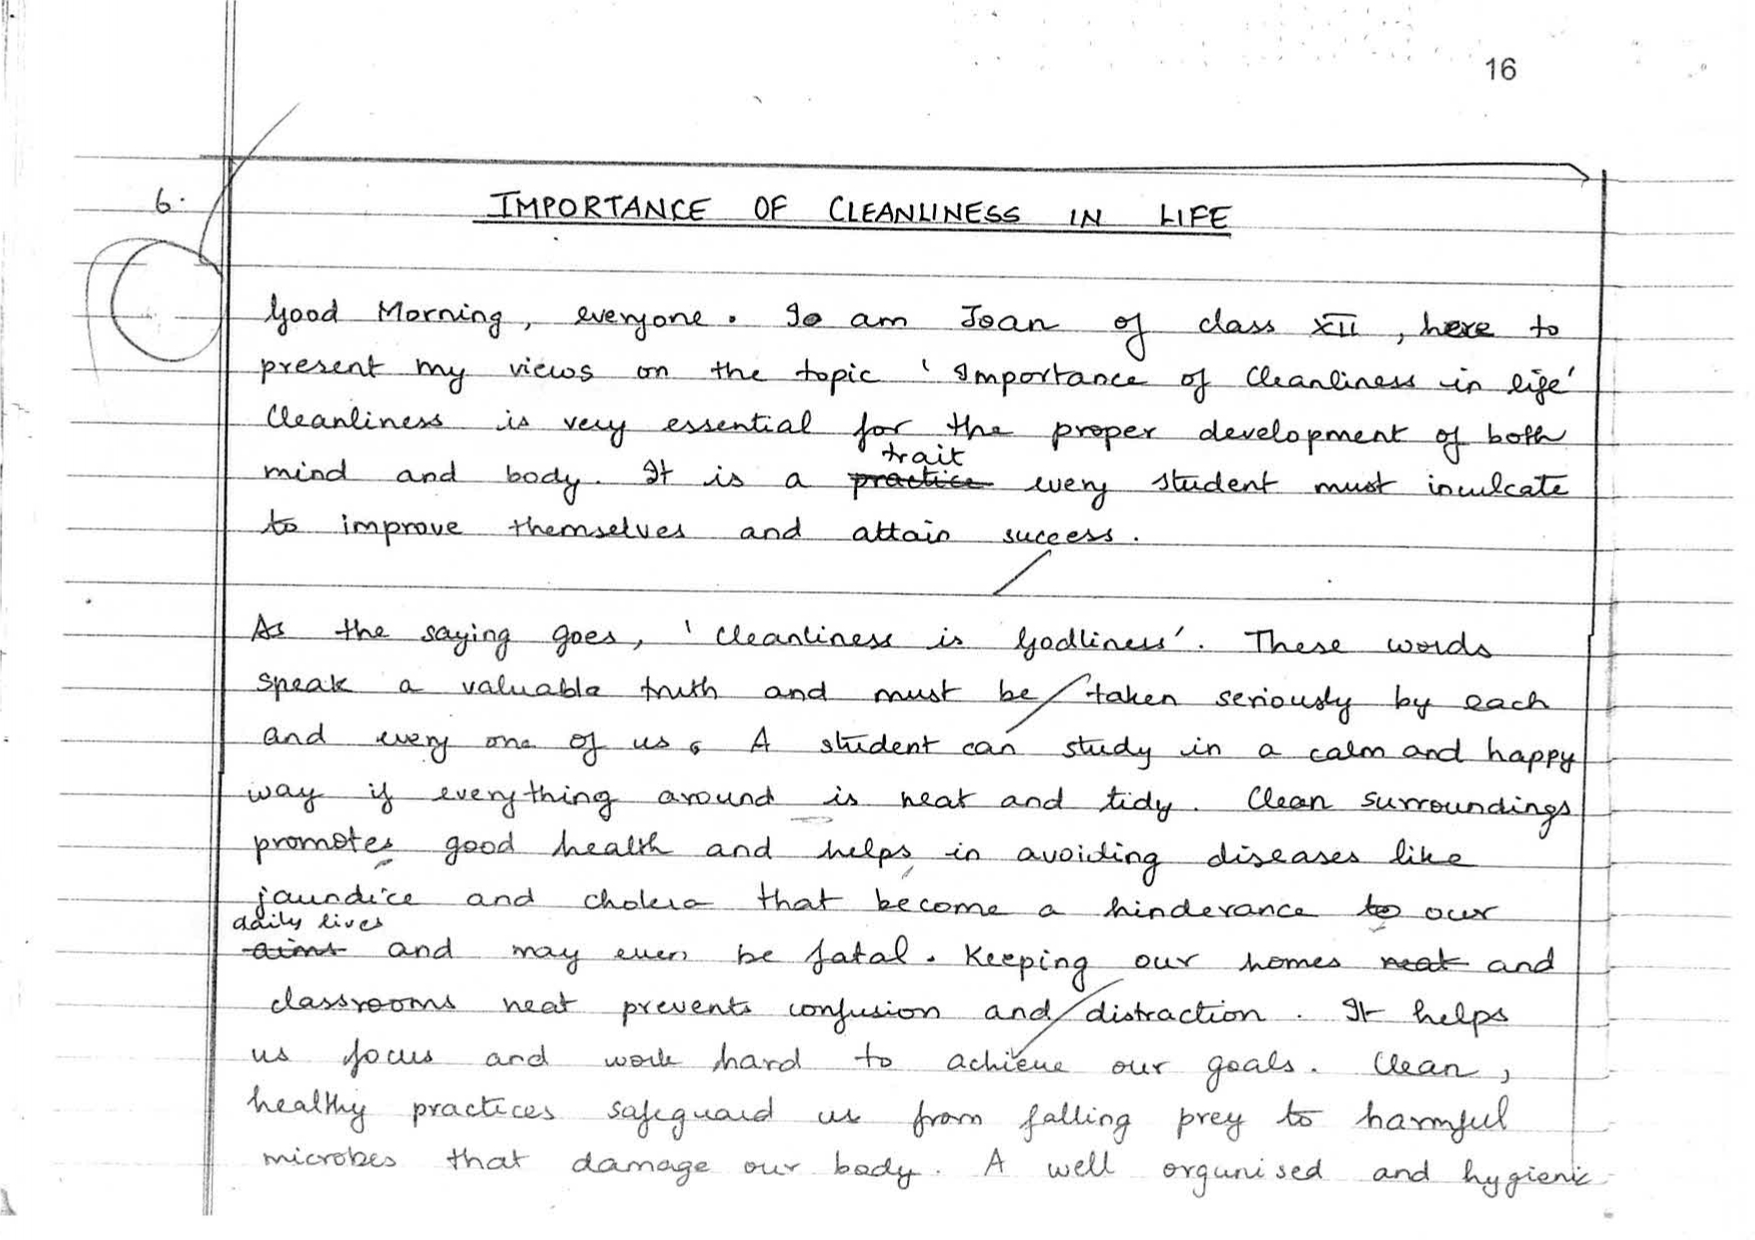 16
6.
IMPORTANCE OF CLEANLINESS IN LIFE
Good Morning, everyone. I am Joan of class XII, here to
present my views on the topic 'Importance of Cleanliness in life'
Cleanliness is very essential for the proper development of both
trait
mind and body. It is a practice every student must inculcate
to improve themselves and attain success.
As the saying goes, 'Cleanliness is Godliness'. These words
speak a valuable truth and must be taken seriously by each
and every one of us. A student can study in a calm and happy
way if everything around is neat and tidy. Clean surroundings
promotes good health and helps in avoiding diseases like
jaundice and cholera that become a hinderance to our
daily lives
aims and may even be fatal. Keeping our homes neat and
classrooms neat prevents confusion and distraction. It helps
us focus and work hard to achieve our goals. Clean,
healthy practices safeguard us from falling prey to harmful
microbes that damage our body. A well organised and hygienic